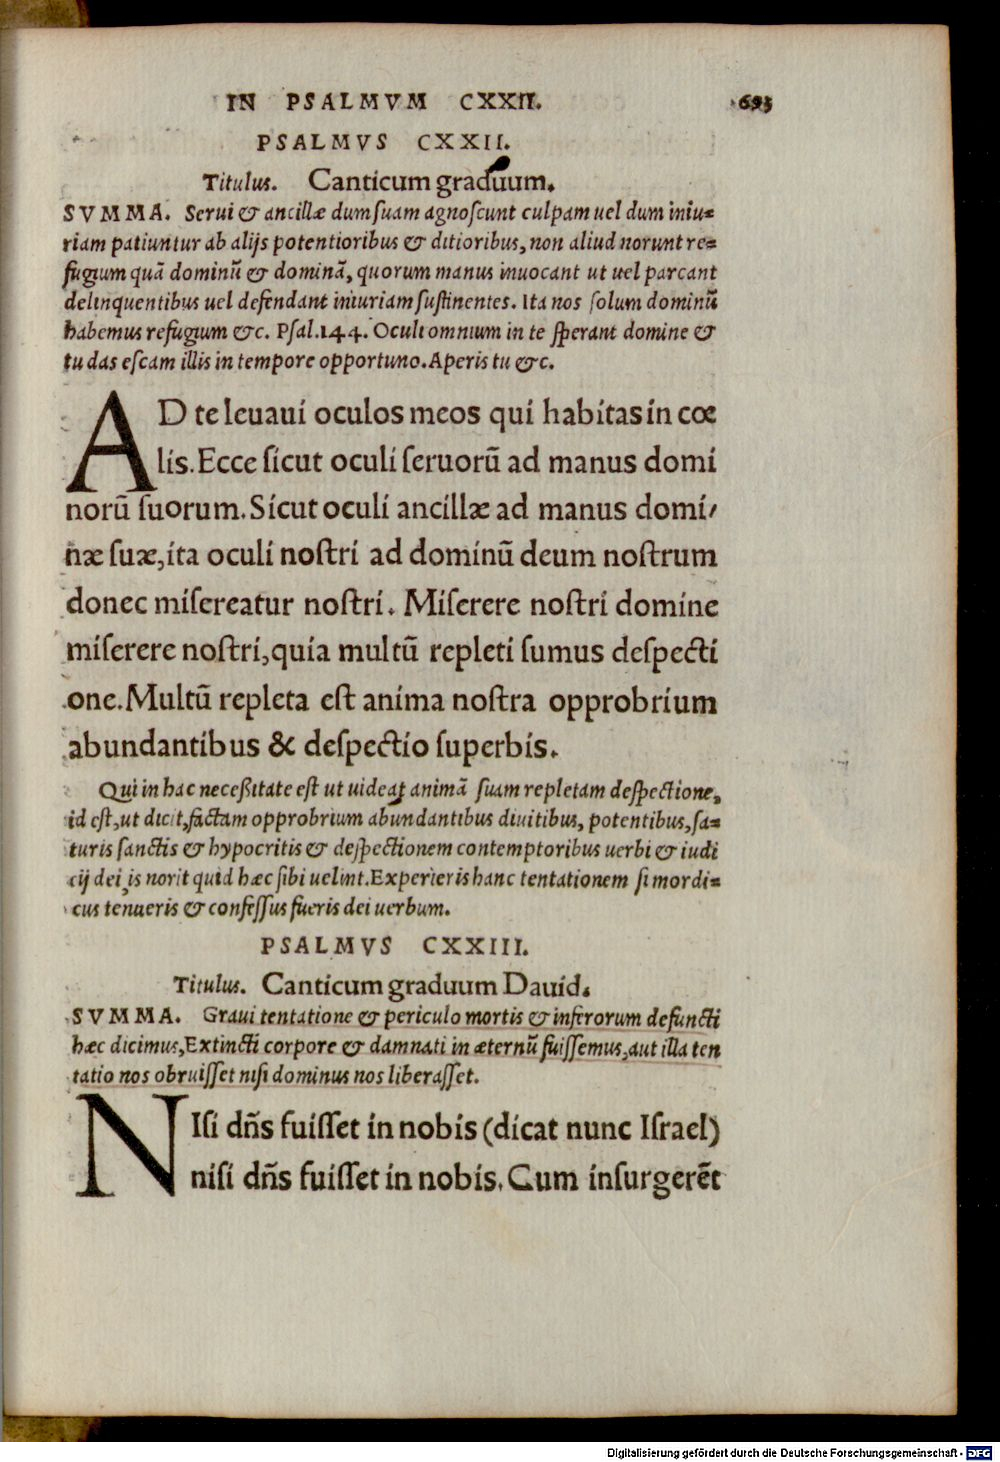 IN PSALMVM CXXII. 693
PSALMVS CXXII.
Titulus. Canticum graduum.
SVMMA. Serui & ancillæ dum suam agnoscunt culpam uel dum iniu=
riam patiuntur ab alijs potentioribus & ditioribus, non aliud norunt re=
fugium quā dominū & dominā, quorum manus inuocant ut uel parcant
delinquentibus uel defendant iniuriam sustinentes. Ita nos solum dominū
habemus refugium &c. Psal.144. Oculi omnium in te sperant domine &
tu das escam illis in tempore opportuno. Aperis tu &c.
AD te leuaui oculos meos qui habitas in cœ
lis. Ecce sicut oculi seruorū ad manus domi
norū suorum. Sicut oculi ancillæ ad manus domi/
næ suæ, ita oculi nostri ad dominū deum nostrum
donec misereatur nostri. Miserere nostri domine
miserere nostri, quia multū repleti sumus despecti
one. Multū repleta est anima nostra opprobrium
abundantibus & despectio superbis.
Qui in hac necessitate est ut uideat animā suam repletam despectione,
id est, ut dicit, factam opprobrium abundantibus diuitibus, potentibus, sa=
turis sanctis & hypocritis & despectionem contemptoribus uerbi & iudi
cij dei, is norit quid hæc sibi uelint. Experieris hanc tentationem si mordi=
cus tenueris & confessus fueris dei uerbum.
PSALMVS CXXIII.
Titulus. Canticum graduum Dauid.
SVMMA. Graui tentatione & periculo mortis & inferorum defuncti
hæc dicimus, Extincti corpore & damnati in æternū fuissemus, aut illa ten
tatio nos obruisset nisi dominus nos liberasset.
NIsi dñs fuisset in nobis (dicat nunc Israel)
nisi dñs fuisset in nobis. Cum insurgerēt
Digitalisierung gefördert durch die Deutsche Forschungsgemeinschaft - DFG